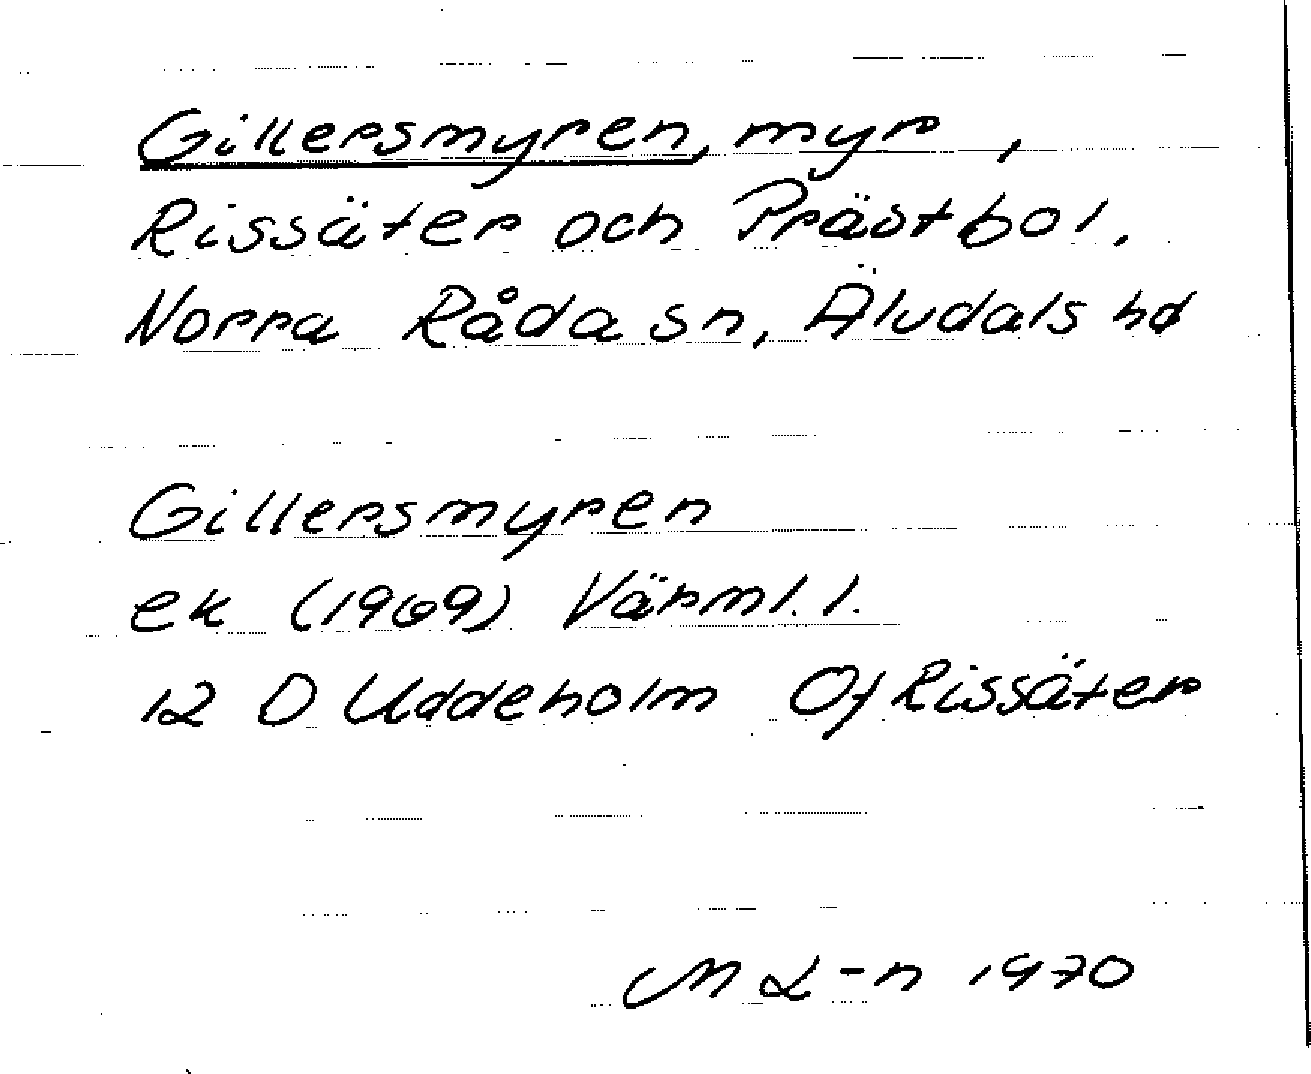 Gillersmyren, myr,
Rissäter och Prästbol,
Norra Råda sn, Älvdals hd
Gillersmyren
ek (1969) Värml. l.
12 D Uddeholm Of Rissäter
M L-n 1970